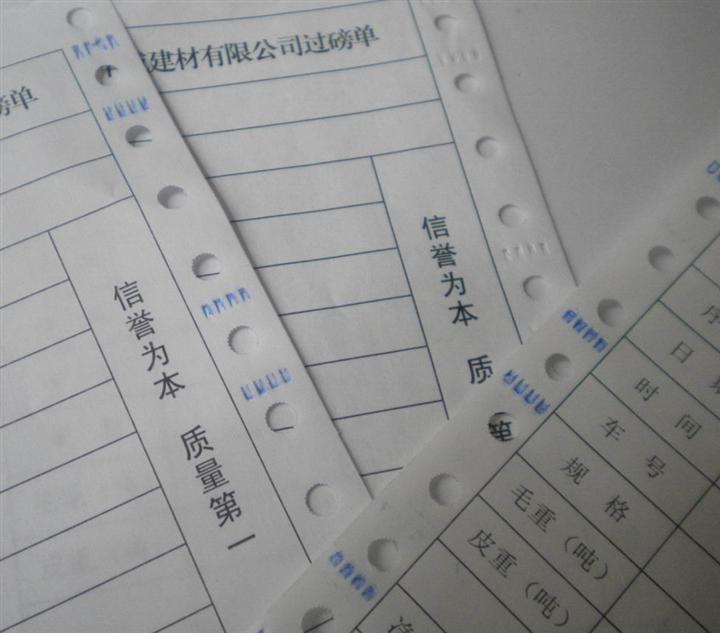 建材有限公司过磅单
磅单
信誉为本 质
信誉为本 质量第一
第
序
日
时间
车号
规格
毛重（吨）
皮重（吨）
净